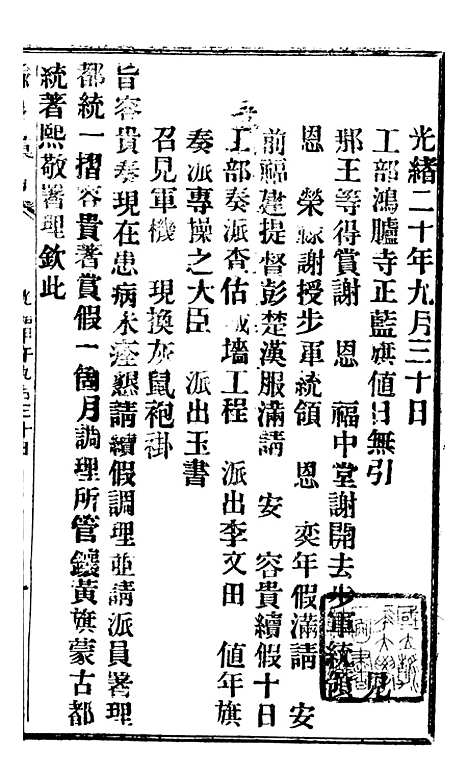 光緒二十年九月三十日
工部鴻臚寺正藍旗値日無引見
那王等得賞謝　恩　福中堂謝開去步軍統領
恩　榮祿謝授步軍統領　恩　奕年假滿請　安
前福建提督彭楚漢服滿請　安　容貴續假十日
工部奏派查估城墻工程　派出李文田　値年旗
奏派專操之大臣　派出玉書
召見軍機　現換灰鼠袍褂
旨容貴奏現在患病未痊懇請續假調理並請派員署理
都統一摺容貴著賞假一個月調理所管鑲黃旗蒙古都
統著熙敬署理欽此